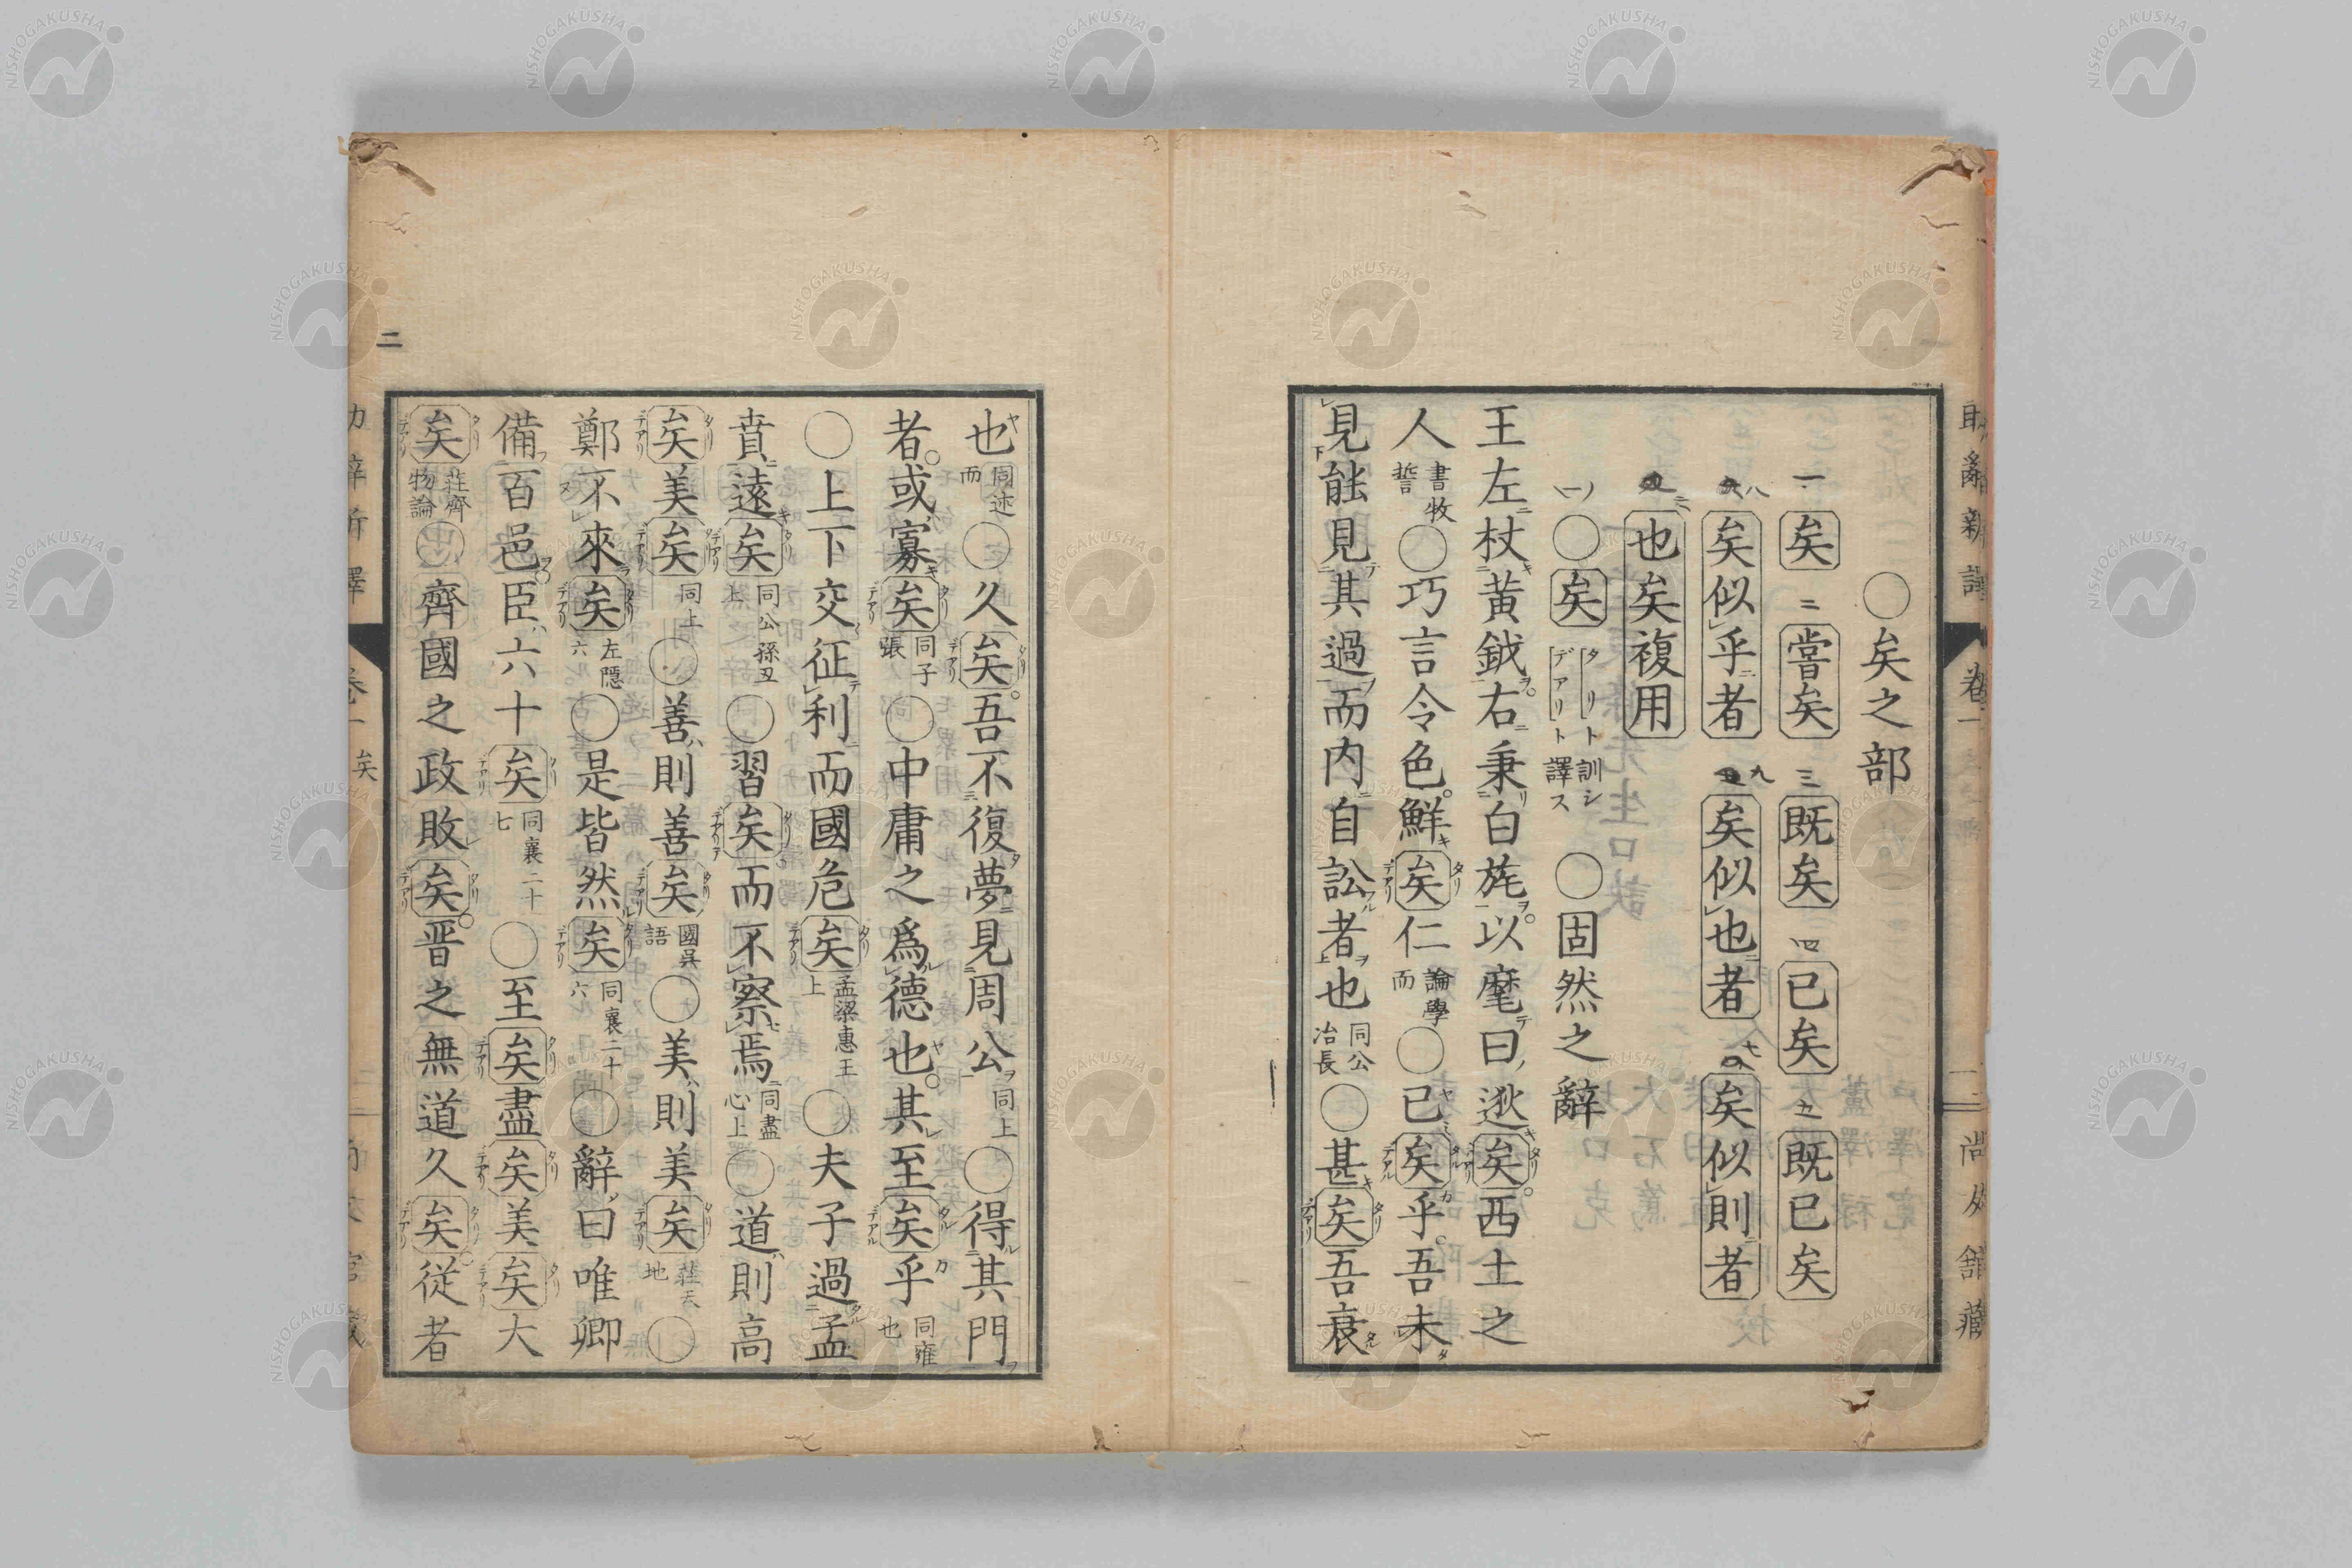 ○矣之部
一矣 二嘗矣 三既矣 四已矣 五既已矣
八矣似乎者 九矣似也者 七矣似則者
也矣複用
(一)○矣 タリト訓シ デアリト譯ス ○固然之辭
王左杖黃鉞右秉白旄以麾曰逖矣西土之
人 書牧誓 ○巧言令色鮮矣仁 論學而 ○已矣乎吾未
見能見其過而内自訟者也 同公冶長 ○甚矣吾衰
也 同述而 ○久矣吾不復夢見周公 同上 ○得其門
者或寡矣 同子張 ○中庸之爲德也其至矣乎 同雍也
○上下交征利而國危矣 孟梁惠王上 ○夫子過孟
賁遠矣 同公孫丑上 ○習矣而不察焉 同盡心上 ○道則高
矣美矣 同上 ○善則善矣 國吳語 ○美則美矣 莊天地 ○
鄭不來矣 左隱六 ○是皆然矣 同襄二十六 ○辭曰唯卿
備百邑臣六十矣 同襄二十七 ○至矣盡矣美矣大
矣 莊齊物論 ○齊國之政敗矣晋之無道久矣從者
二
卷一 矣
卷一
尚友館藏
NISHOGAKUSHA